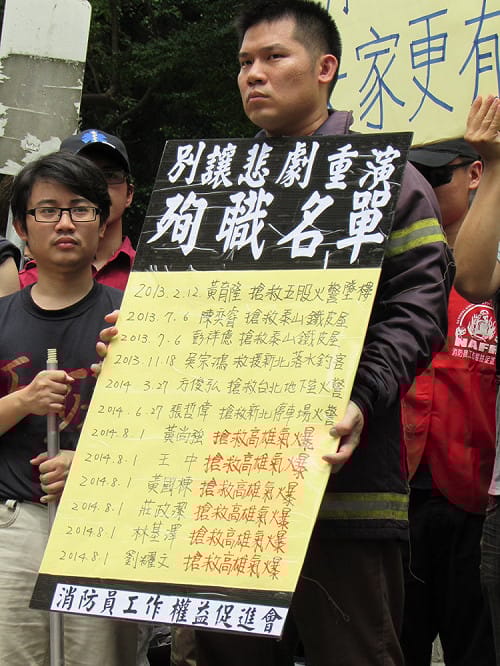 家更有
別讓悲劇重演
殉職名單
2013.2.12 黃育隆 搶救五股火警墜樓
2013.7.6 陳奕齊 搶救泰山鐵皮屋
2013.7.6 彭祥億 搶救泰山鐵皮屋
2013.11.18 吳宗鴻 救援新北落水釣客
2014.3.27 方俊弘 搶救台北地下室火警
2014.6.27 張哲偉 搶救新北停車場火警
2014.8.1 黃尚強 搶救高雄氣爆
2014.8.1 王中 搶救高雄氣爆
2014.8.1 黃國棟 搶救高雄氣爆
2014.8.1 莊政潔 搶救高雄氣爆
2014.8.1 林基澤 搶救高雄氣爆
2014.8.1 劉耀文 搶救高雄氣爆
消防員工作權益促進會
NAFR